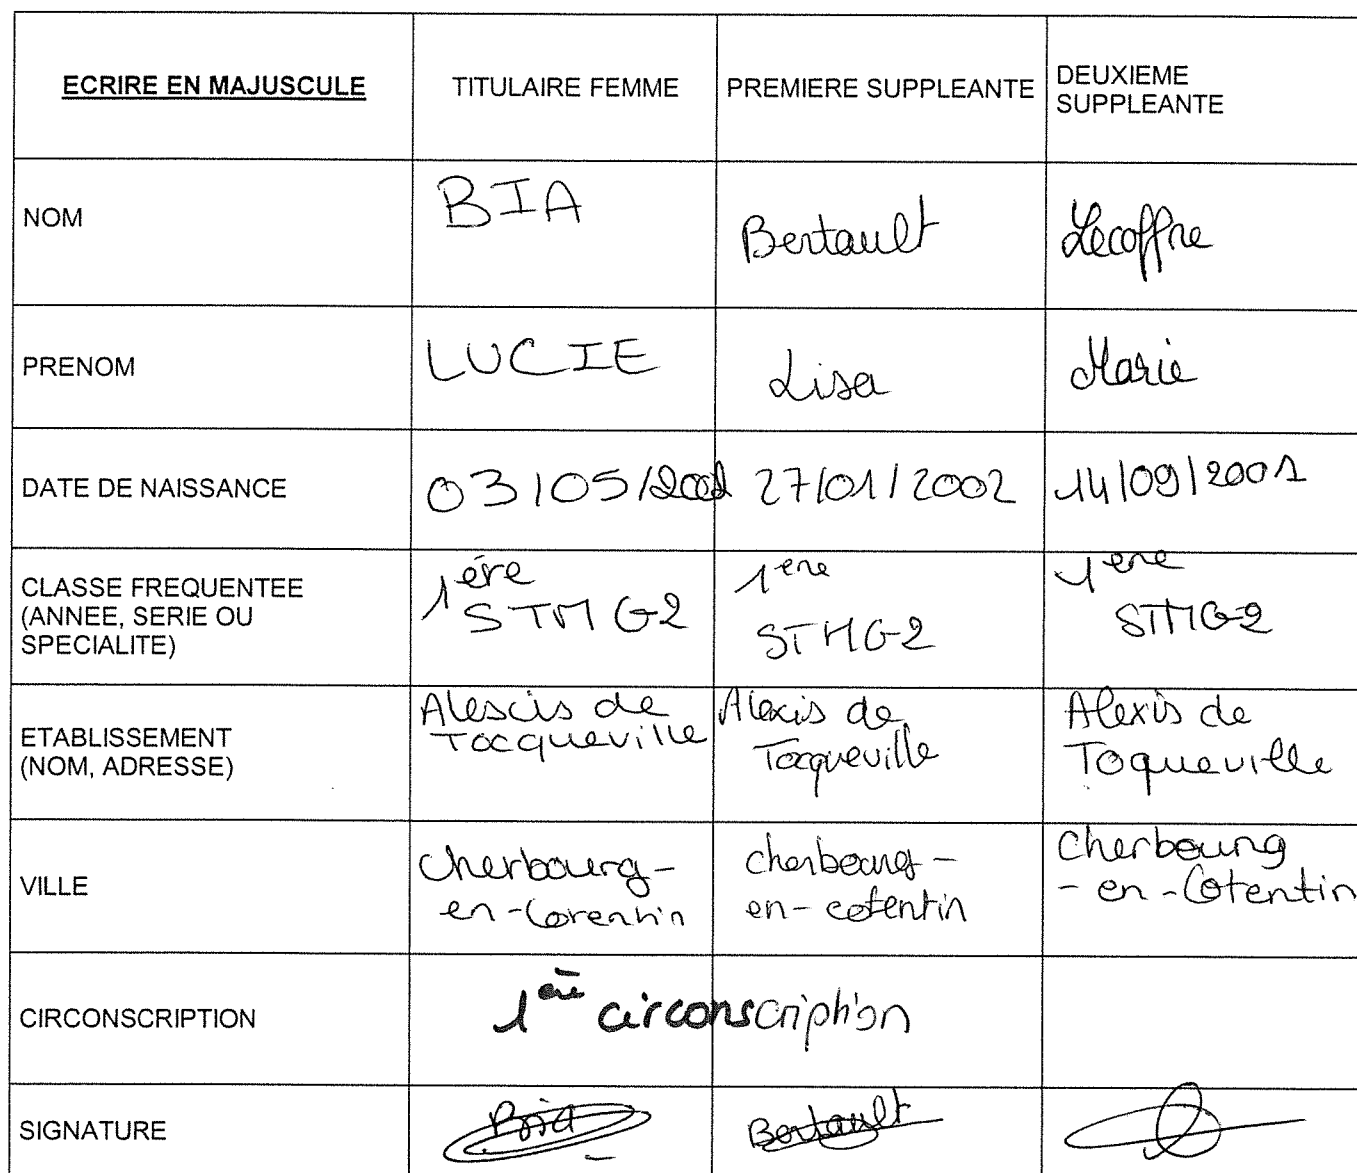 ECRIRE EN MAJUSCULE TITULAIRE FEMME PREMIERE SUPPLEANTE DEUXIEME
SUPPLEANTE
NOM BIA Bertault Lecoffre
PRENOM LUCIE Lisa Marie
DATE DE NAISSANCE 03/05/2002 27/01/2002 14/09/2001
CLASSE FREQUENTEE
(ANNEE, SERIE OU
SPECIALITE)
1ère
STMG2
1ere
STMG2
1ere
STMG2
ETABLISSEMENT
(NOM, ADRESSE)
Alexis de
Tocqueville
Alexis de
Tocqueville
Alexis de
Toqueville
VILLE
Cherbourg-
en-Cotentin
cherbourg-
en-cotentin
Cherbourg
-en-Cotentin
CIRCONSCRIPTION 1ère circonscription
SIGNATURE Bia Bertault